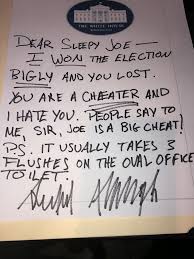 THE WHITE HOUSE
DEAR SLEEPY JOE —
I WON THE ELECTION
BIGLY AND YOU LOST.
YOU ARE A CHEATER AND
I HATE YOU. PEOPLE SAY TO
ME, SIR, JOE IS A BIG CHEAT!
P.S. IT USUALLY TAKES 3
FLUSHES ON THE OVAL OFFICE
TOILET.